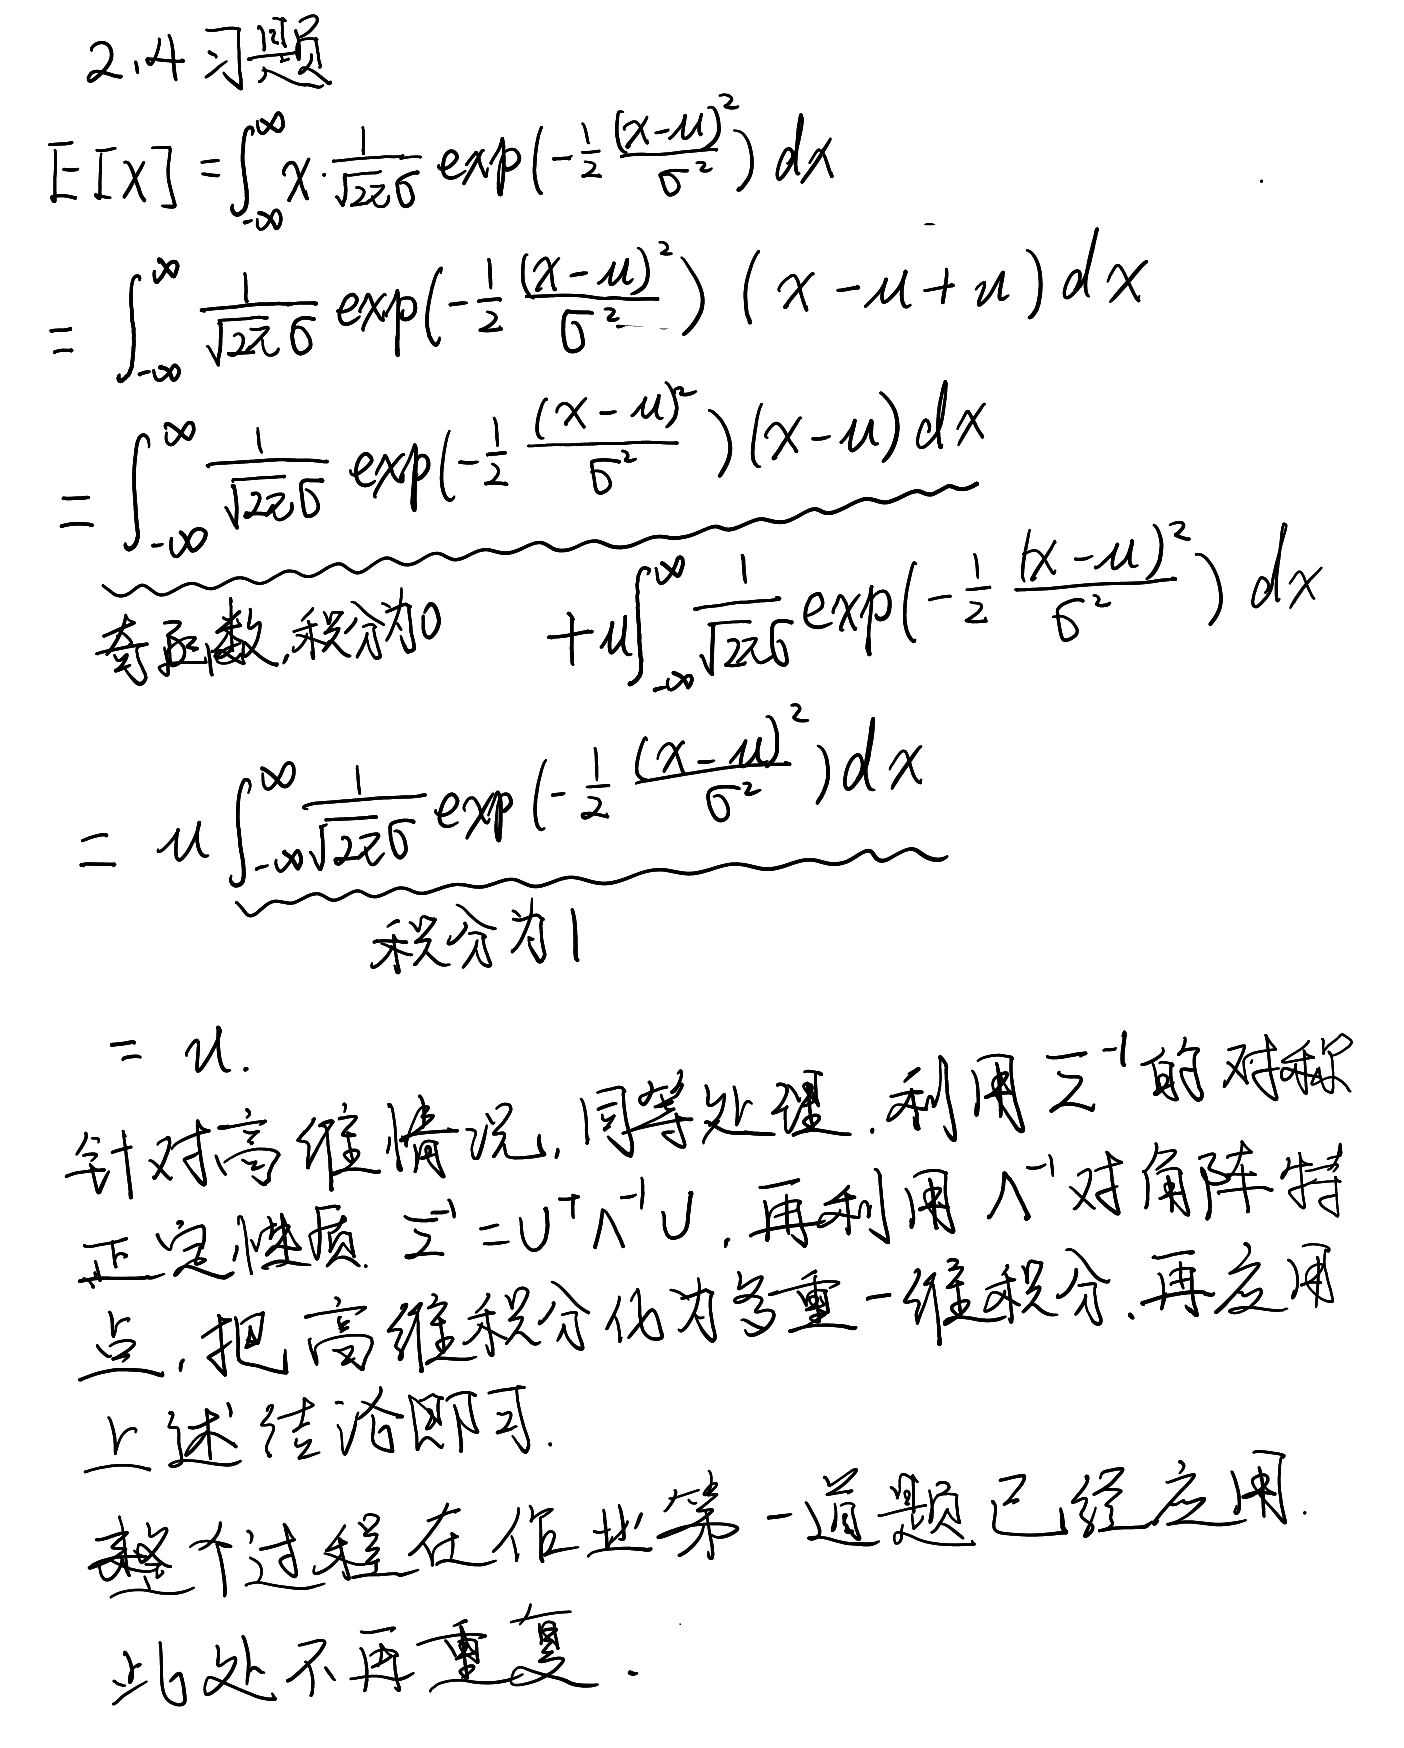 2.4 习题
E[x] = ∫_{-∞}^{∞} x·\frac{1}{\sqrt{2π}σ} exp(-\frac{1}{2}\frac{(x-u)^2}{σ^2}) dx
= ∫_{-∞}^{∞} \frac{1}{\sqrt{2π}σ} exp(-\frac{1}{2}\frac{(x-u)^2}{σ^2}) (x-u+u) dx
= ∫_{-∞}^{∞} \frac{1}{\sqrt{2π}σ} exp(-\frac{1}{2}\frac{(x-u)^2}{σ^2}) (x-u) dx
奇函数,积分为0 + u∫_{-∞}^{∞} \frac{1}{\sqrt{2π}σ} exp(-\frac{1}{2}\frac{(x-u)^2}{σ^2}) dx
= u ∫_{-∞}^{∞} \frac{1}{\sqrt{2π}σ} exp(-\frac{1}{2}\frac{(x-u)^2}{σ^2}) dx
积分为1
= u.
针对高维情况,同等处理.利用Σ^{-1}的对称
正定性质. Σ^{-1}=U^TΛ^{-1}U,再利用Λ^{-1}对角阵特
点,把高维积分化为多重一维积分.再应用
上述结论即可.
整个过程在作业第一道题已经应用.
此处不再重复.